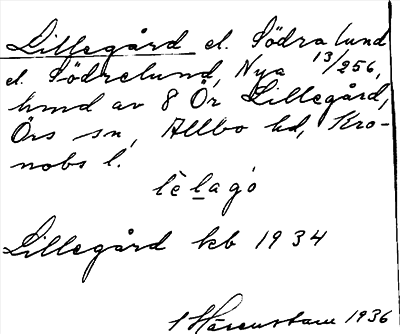 Lillegård el. Södra lund
el. Södrelund, Nya 13/256,
hmd av 8 Ör Lillegård,
Örs sn, Allbo hd, Kro-
nobs l.
lè lagó
Lillegård kb 1934
Härenstam 1936